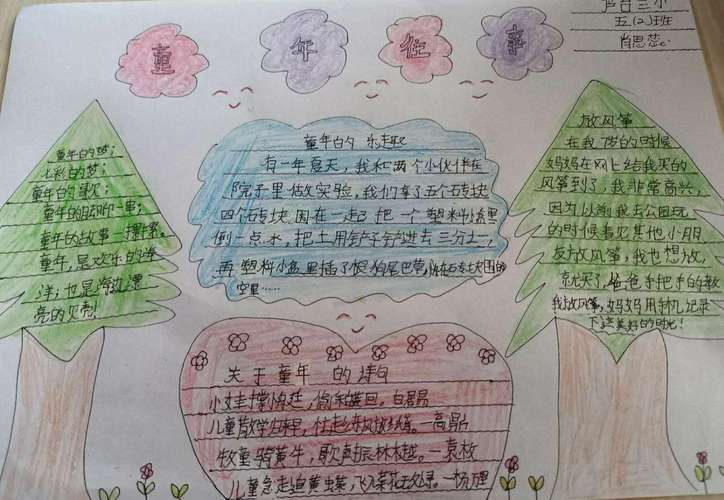 童年往事
芦台三小
五.(2)班
肖思蕊
童年的梦;
七彩的梦;
童年的歌;
童年的脚印一串;
童年的故事一摞摞。
童年,是欢乐的海
洋;也是海边漂
亮的贝壳!
童年的 乐趣
有一年夏天,我和两个小伙伴在
院子里做实验,我们拿了五个石专块
四个砖块围在一起,把一个塑料盒里
倒一点水,把土用铲子铲进去三分之一,
再塑料盒里插了根狗尾巴草,放在砖块围的
空里……
放风筝
在我7岁的时候
妈妈在网上给我买的
风筝到了,我非常高兴,
因为以前我去公园玩
的时候看见其他小朋
友放风筝,我也想放,
就买了,爸爸手把手的教
我放风筝,妈妈用手机记录
下这美好的时光!
关于童年的诗句
小娃撑小艇,偷采白莲回。白居易
儿童散学归来早,忙趁东风放纸鸢。—高鼎
牧童骑黄牛,歌声振林樾。—袁枚
儿童急走追黄蝶,飞入菜花无处寻。—杨万里